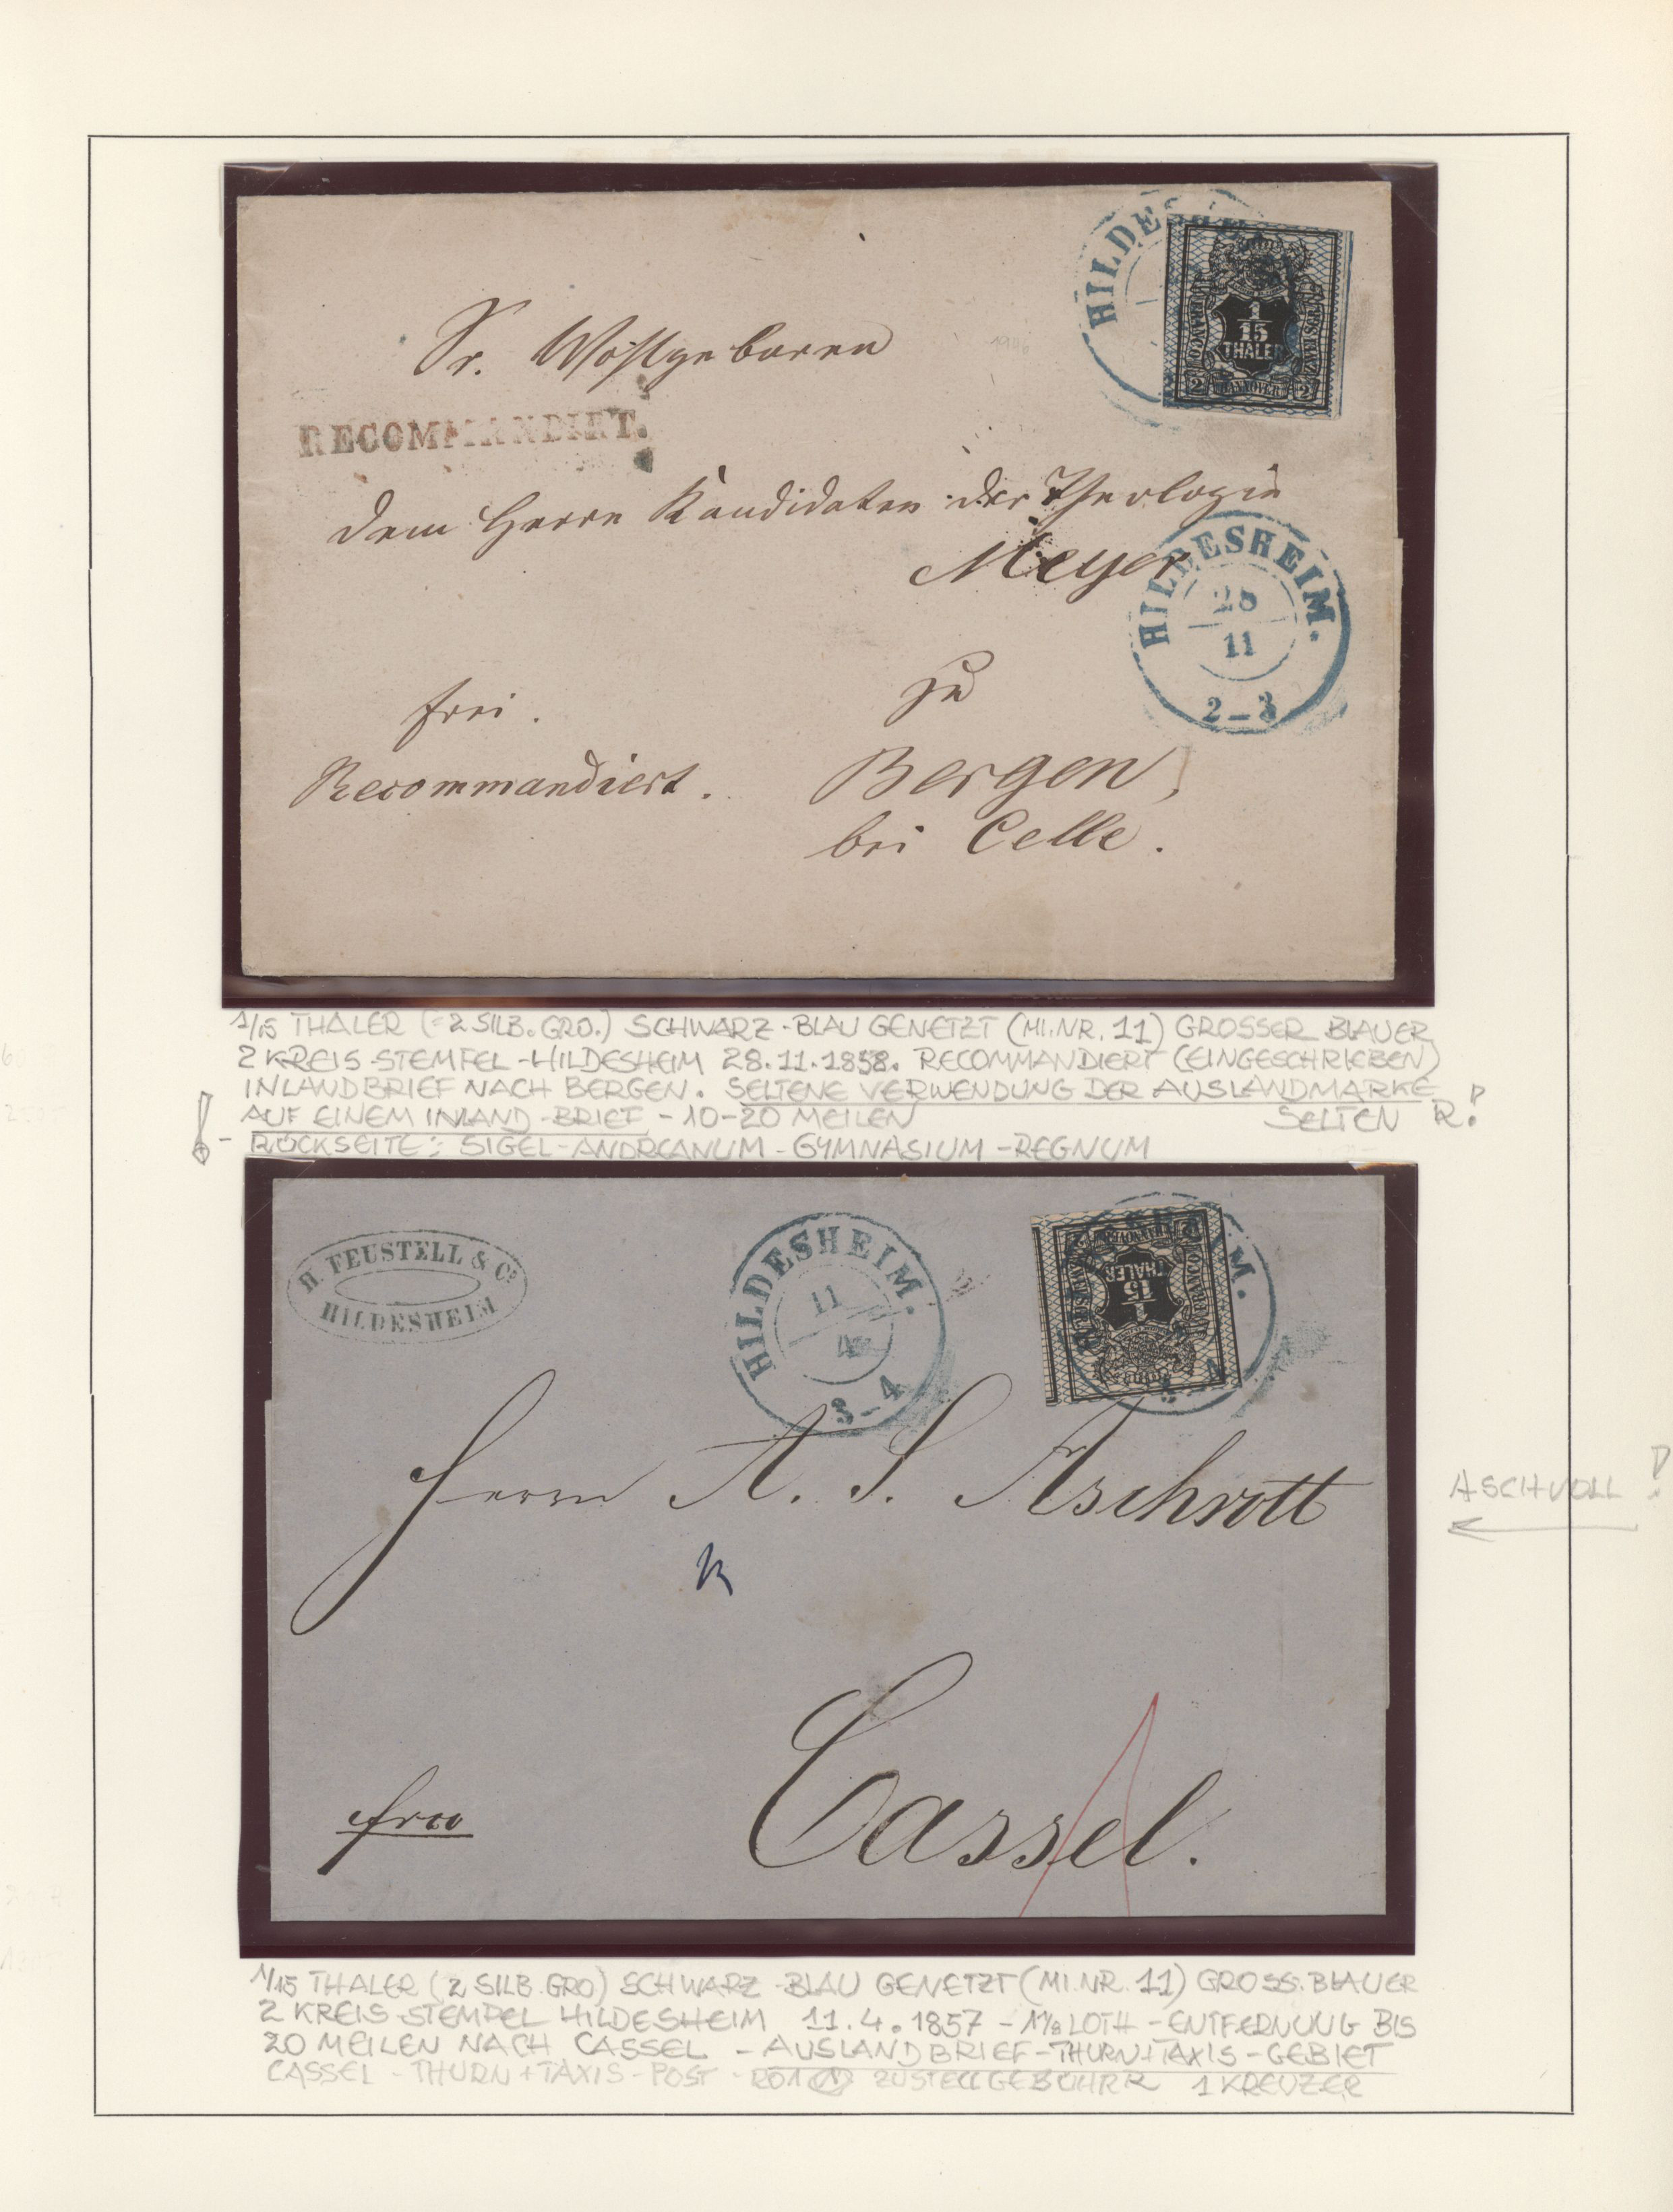 HILDESHEIM
FRANCO
1
15
THALER
ZWEI SGR.
2 HANNOVER 2
Sr. Wohlgeboren
RECOMMANDIRT.
dem Herrn Kandidaten der Theologie
Meyer
HILDESHEIM.
28
11
2-3
zu
frei.
Recommandiert.
Bergen,
bei Celle.
1/15 THALER (=2 SILB. GRO.) SCHWARZ-BLAU GENETZT (MI.NR. 11) GROSSER BLAUER
2 KREIS-STEMPEL-HILDESHEIM 28.11.1858. RECOMMANDIERT (EINGESCHRIEBEN)
INLANDBRIEF NACH BERGEN. SELTENE VERWENDUNG DER AUSLANDMARKE
AUF EINEM INLAND-BRIEF - 10-20 MEILEN SELTEN R!
! - RÜCKSEITE: SIGEL-ANDREANUM-GYMNASIUM-REGNUM
H. FEUSTELL & Co.
HILDESHEIM
HILDESHEIM.
11
4
3-4
HANNOVER
FRANCO
1
15
THALER
Herrn A. S. Aschrott
ASCHROTT!
Cassel.
frco
1/15 THALER (2 SILB. GRO) SCHWARZ-BLAU GENETZT (MI.NR. 11) GROSS. BLAUER
2 KREIS-STEMPEL HILDESHEIM 11.4.1857 - 1 1/8 LOTH - ENTFERNUNG BIS
20 MEILEN NACH CASSEL - AUSLANDBRIEF-THURN+TAXIS-GEBIET
CASSEL - THURN+TAXIS-POST - ZUSTELLGEBÜHR 1 KREUZER